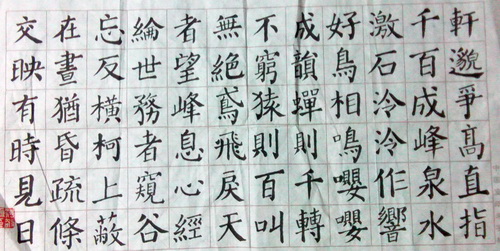 軒邈爭高直指
千百成峰泉水
激石泠泠作響
好鳥相鳴嚶嚶
成韻蟬則千轉
不窮猿則百叫
無絕鳶飛戾天
者望峰息心經
綸世務者窺谷
忘反橫柯上蔽
在晝猶昏疏條
交映有時見日